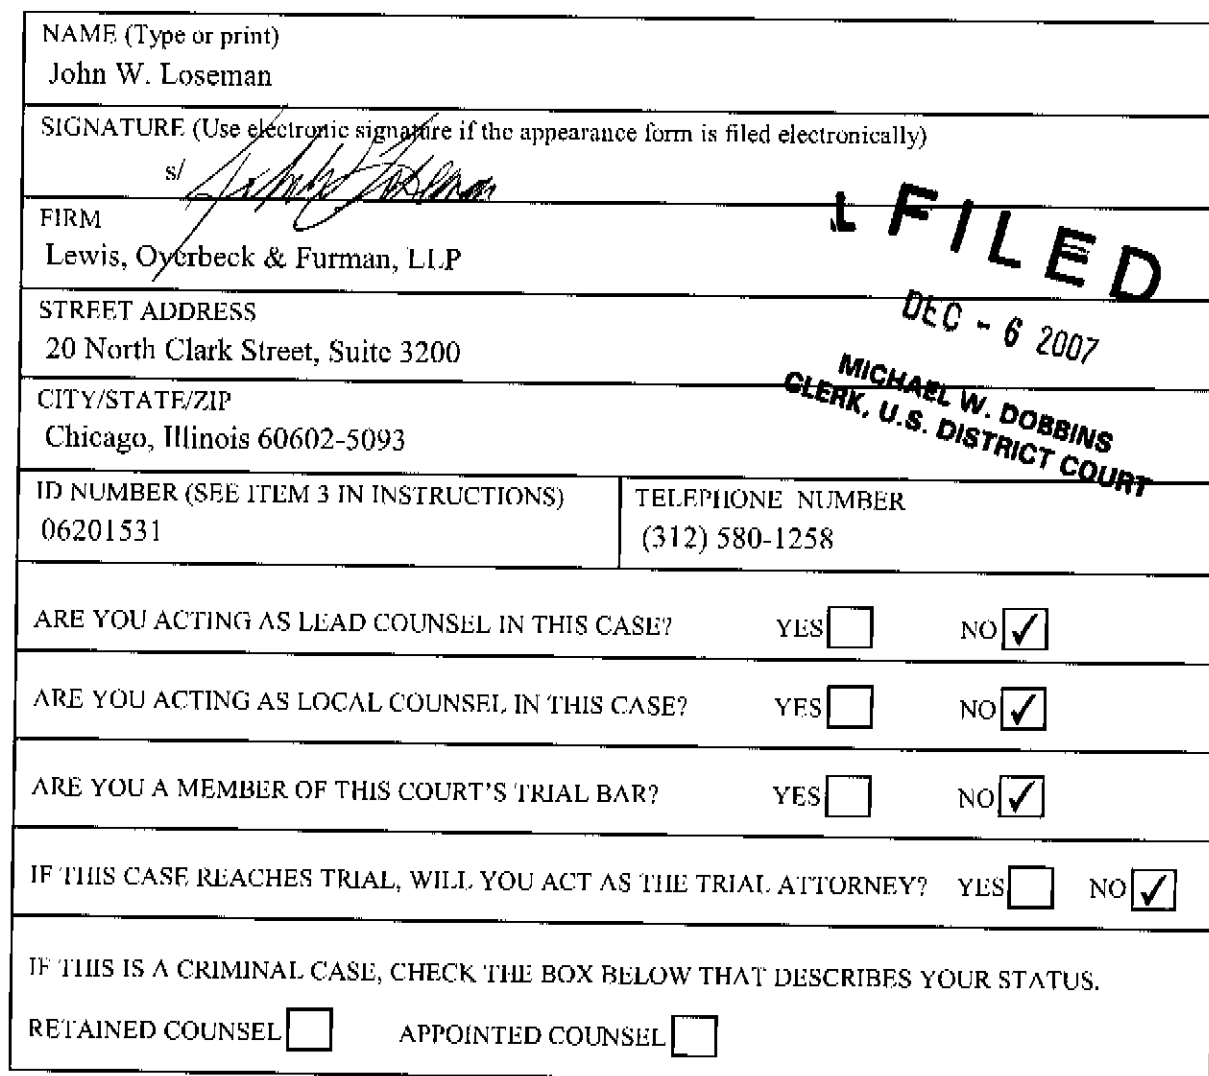 NAME (Type or print)
John W. Loseman
SIGNATURE (Use electronic signature if the appearance form is filed electronically)
s/ John W Loseman
FIRM
Lewis, Overbeck & Furman, LLP
FILED
STREET ADDRESS
20 North Clark Street, Suite 3200
DEC - 6 2007
CITY/STATE/ZIP
Chicago, Illinois 60602-5093
MICHAEL W. DOBBINS
CLERK, U.S. DISTRICT COURT
ID NUMBER (SEE ITEM 3 IN INSTRUCTIONS)
06201531
TELEPHONE NUMBER
(312) 580-1258
ARE YOU ACTING AS LEAD COUNSEL IN THIS CASE? YES NO ✓
ARE YOU ACTING AS LOCAL COUNSEL IN THIS CASE? YES NO ✓
ARE YOU A MEMBER OF THIS COURT'S TRIAL BAR? YES NO ✓
IF THIS CASE REACHES TRIAL, WILL YOU ACT AS THE TRIAL ATTORNEY? YES NO ✓
IF THIS IS A CRIMINAL CASE, CHECK THE BOX BELOW THAT DESCRIBES YOUR STATUS.
RETAINED COUNSEL APPOINTED COUNSEL